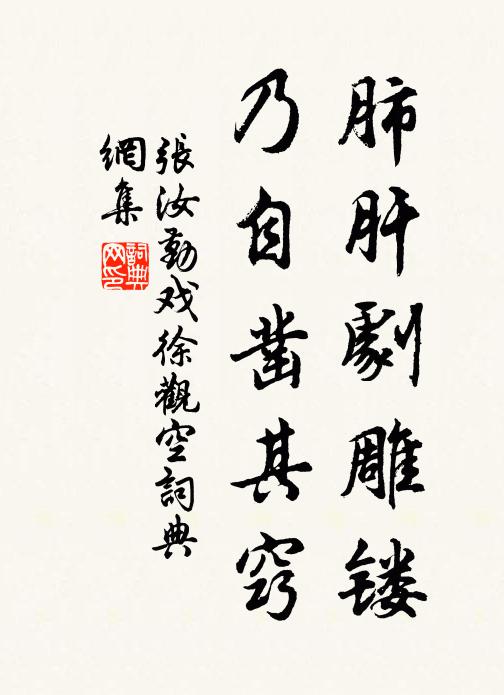 肺肝劇雕镂
乃自凿其窍
張汝勤戏徐觀空詞典
網集
詞典網印